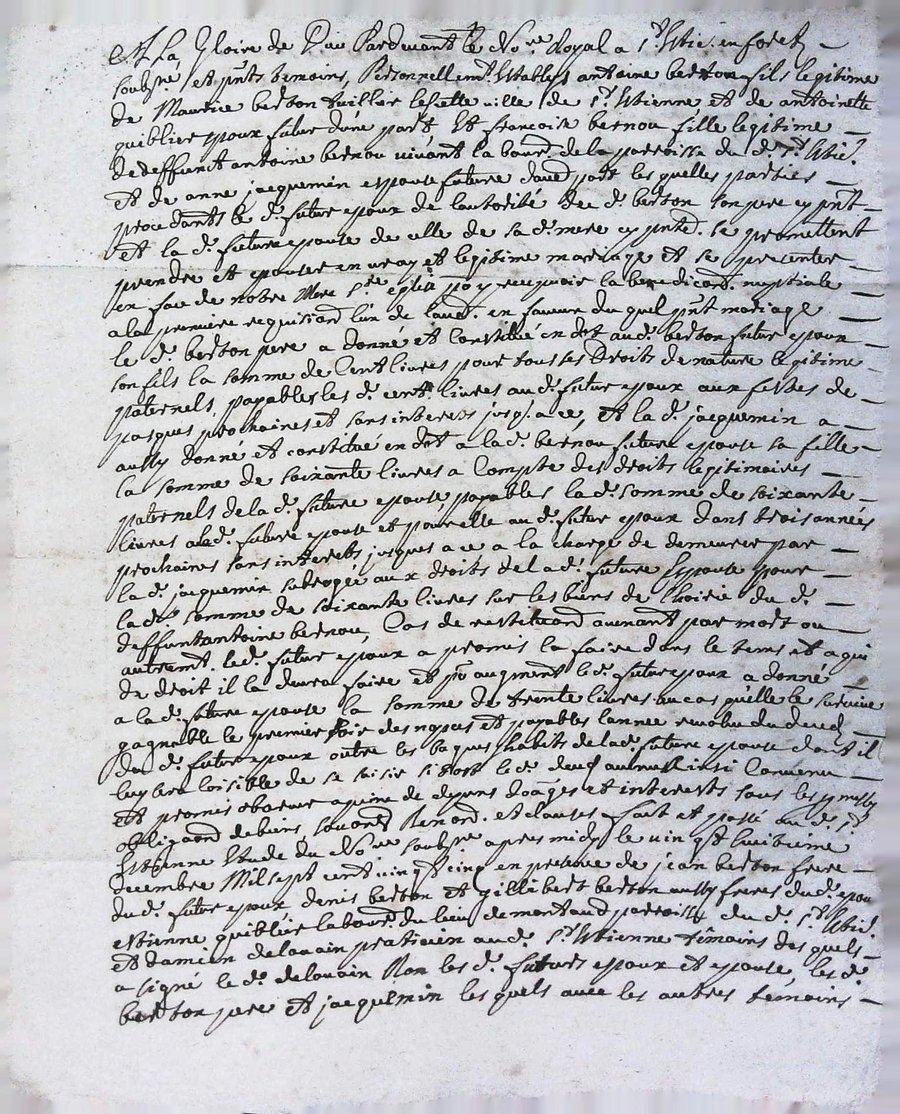 A La Gloire de Dieu Pardevant le No.re Royal a S.t Etie. en forets
soubs.né et p.nts temoins, Personnellem.t Etablys antoine berton fils legitime
de Maurice berton tuillier de cette ville de S.t Etienne et de antoinette
quiblier epoux futur d'une part Et francoise bernou fille legitime
de deffunct antoine bernou vivant labour. de la parroisse du d. S.t Etie.
et de anne jacquemin espouse future dautre part les quelles parties
procedants le d. futur epoux de lautorité du d. berton son pere cy p.nt
et la d. future epouse de celle de sa d. mere cy p.nte. se promettent
prendre et epouser en vray et legitime mariage et se presenter
en face de notre Mere S.te eglise po.r y recepvoir la benediction. nuptiale
a la premiere requisition. lun de lautre. en faveur du quel p.nt mariage
le d. berton pere a donné et constitué en d.ot au d. berton futur epoux
son fils la somme de Cent livres pour tous ses droits de nature legitime
paternels, payables les d. cent. livres au d. futur epoux aux festes de
pasques prochaines et sans interets jusq. a ce, et la d. jacquemin a
aussy donné et constitué en dot a la d. bernou future epouse sa fille
la somme de soixante livres a Compte des droits legitimaires
paternels de la d. future epouse, payables la d. somme de soixante
livres a la d. future epouse et pour elle au d. futur epoux dans trois années
prochaines sans interets jusques a ce a la charge de demeurer par
la d. jacquemin subrogee aux droits de la d. future Epouse pour
la d. somme de soixante livres sur les biens de l'hoirie du d.
deffunt antoine bernou, Cas de restitution. avenant par mort ou
autrem.t. le d. futur epoux a promis la faire dans le tems et a qui
de droit il la devra faire et p.r augment le d. futur epoux a donné
a la d. future epouse la somme de trente livres au cas qu'elle le survive
gagnable le premier soir des nopces et payables l'annee revolue du deced
du d. futur epoux outre les bagues habits de la d. future epouse dont il
luy sera loisible de se saisir sitost le d. deced avenu ainsi Convenu
et promis observer a peine de depens dom.ages et interests sous les p
obligaon. de biens, soum.ons Renon. et clauses fait et passé au d. S.t
Etienne Etude du No.re soubs.né apres midy le vingt huitieme
decembre Mil sept cent vingt cinq en presence de jean berton frere
du d. futur epoux denis berton et gillibert berton aussy freres du d. epou
estienne quiblier labour. du lieu de montaud parroisse du d. S.t Etie.
et damien delouain praticien au d. S.t Etienne temoins des quels
a signé le d. delouain Non les d. futurs epoux et epouse, les d.
berton pere et jacquemin les quels avec les autres temoins